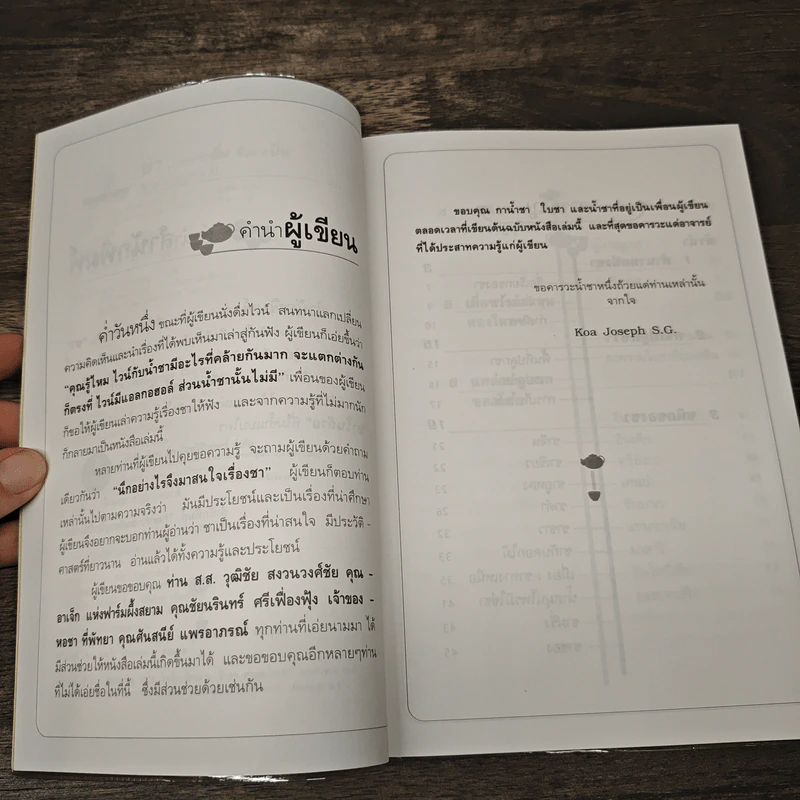 คำนำผู้เขียน
ค่ำวันหนึ่ง ขณะที่ผู้เขียนนั่งดื่มไวน์ สนทนาแลกเปลี่ยน
ความคิดเห็นและนำเรื่องที่ได้พบเห็นมาเล่าสู่กันฟัง ผู้เขียนก็เอ่ยขึ้นว่า
“คุณรู้ไหม ไวน์กับน้ำชามีอะไรที่คล้ายกันมาก จะแตกต่างกัน
ก็ตรงที่ ไวน์มีแอลกอฮอล์ ส่วนน้ำชานั้นไม่มี” เพื่อนของผู้เขียน
ก็ขอให้ผู้เขียนเล่าความรู้เรื่องชาให้ฟัง และจากความรู้ที่ไม่มากนัก
ก็กลายมาเป็นหนังสือเล่มนี้
หลายท่านที่ผู้เขียนไปคุยขอความรู้ จะถามผู้เขียนด้วยคำถาม
เดียวกันว่า “นึกอย่างไรจึงมาสนใจเรื่องชา” ผู้เขียนก็ตอบท่าน
เหล่านั้นไปตามความจริงว่า มันมีประโยชน์และเป็นเรื่องที่น่าศึกษา
ผู้เขียนจึงอยากจะบอกท่านผู้อ่านว่า ชาเป็นเรื่องที่น่าสนใจ มีประวัติ -
ศาสตร์ที่ยาวนาน อ่านแล้วได้ทั้งความรู้และประโยชน์
ผู้เขียนขอขอบคุณ ท่าน ส.ส. วุฒิชัย สงวนวงศ์ชัย คุณ -
อาเจ็ก แห่งฟาร์มผึ้งสยาม คุณชัยนรินทร์ ศรีเฟื่องฟุ้ง เจ้าของ -
หอชา ที่พัทยา คุณศันสนีย์ แพรอาภรณ์ ทุกท่านที่เอ่ยนามมา ได้
มีส่วนช่วยให้หนังสือเล่มนี้เกิดขึ้นมาได้ และขอขอบคุณอีกหลายๆท่าน
ที่ไม่ได้เอ่ยชื่อในที่นี้ ซึ่งมีส่วนช่วยด้วยเช่นกัน
ขอบคุณ กาน้ำชา ใบชา และน้ำชาที่อยู่เป็นเพื่อนผู้เขียน
ตลอดเวลาที่เขียนต้นฉบับหนังสือเล่มนี้ และที่สุดขอคารวะแด่อาจารย์
ที่ได้ประสาทความรู้แก่ผู้เขียน
ขอคารวะน้ำชาหนึ่งถ้วยแด่ท่านเหล่านั้น
จากใจ
Koa Joseph S.G.